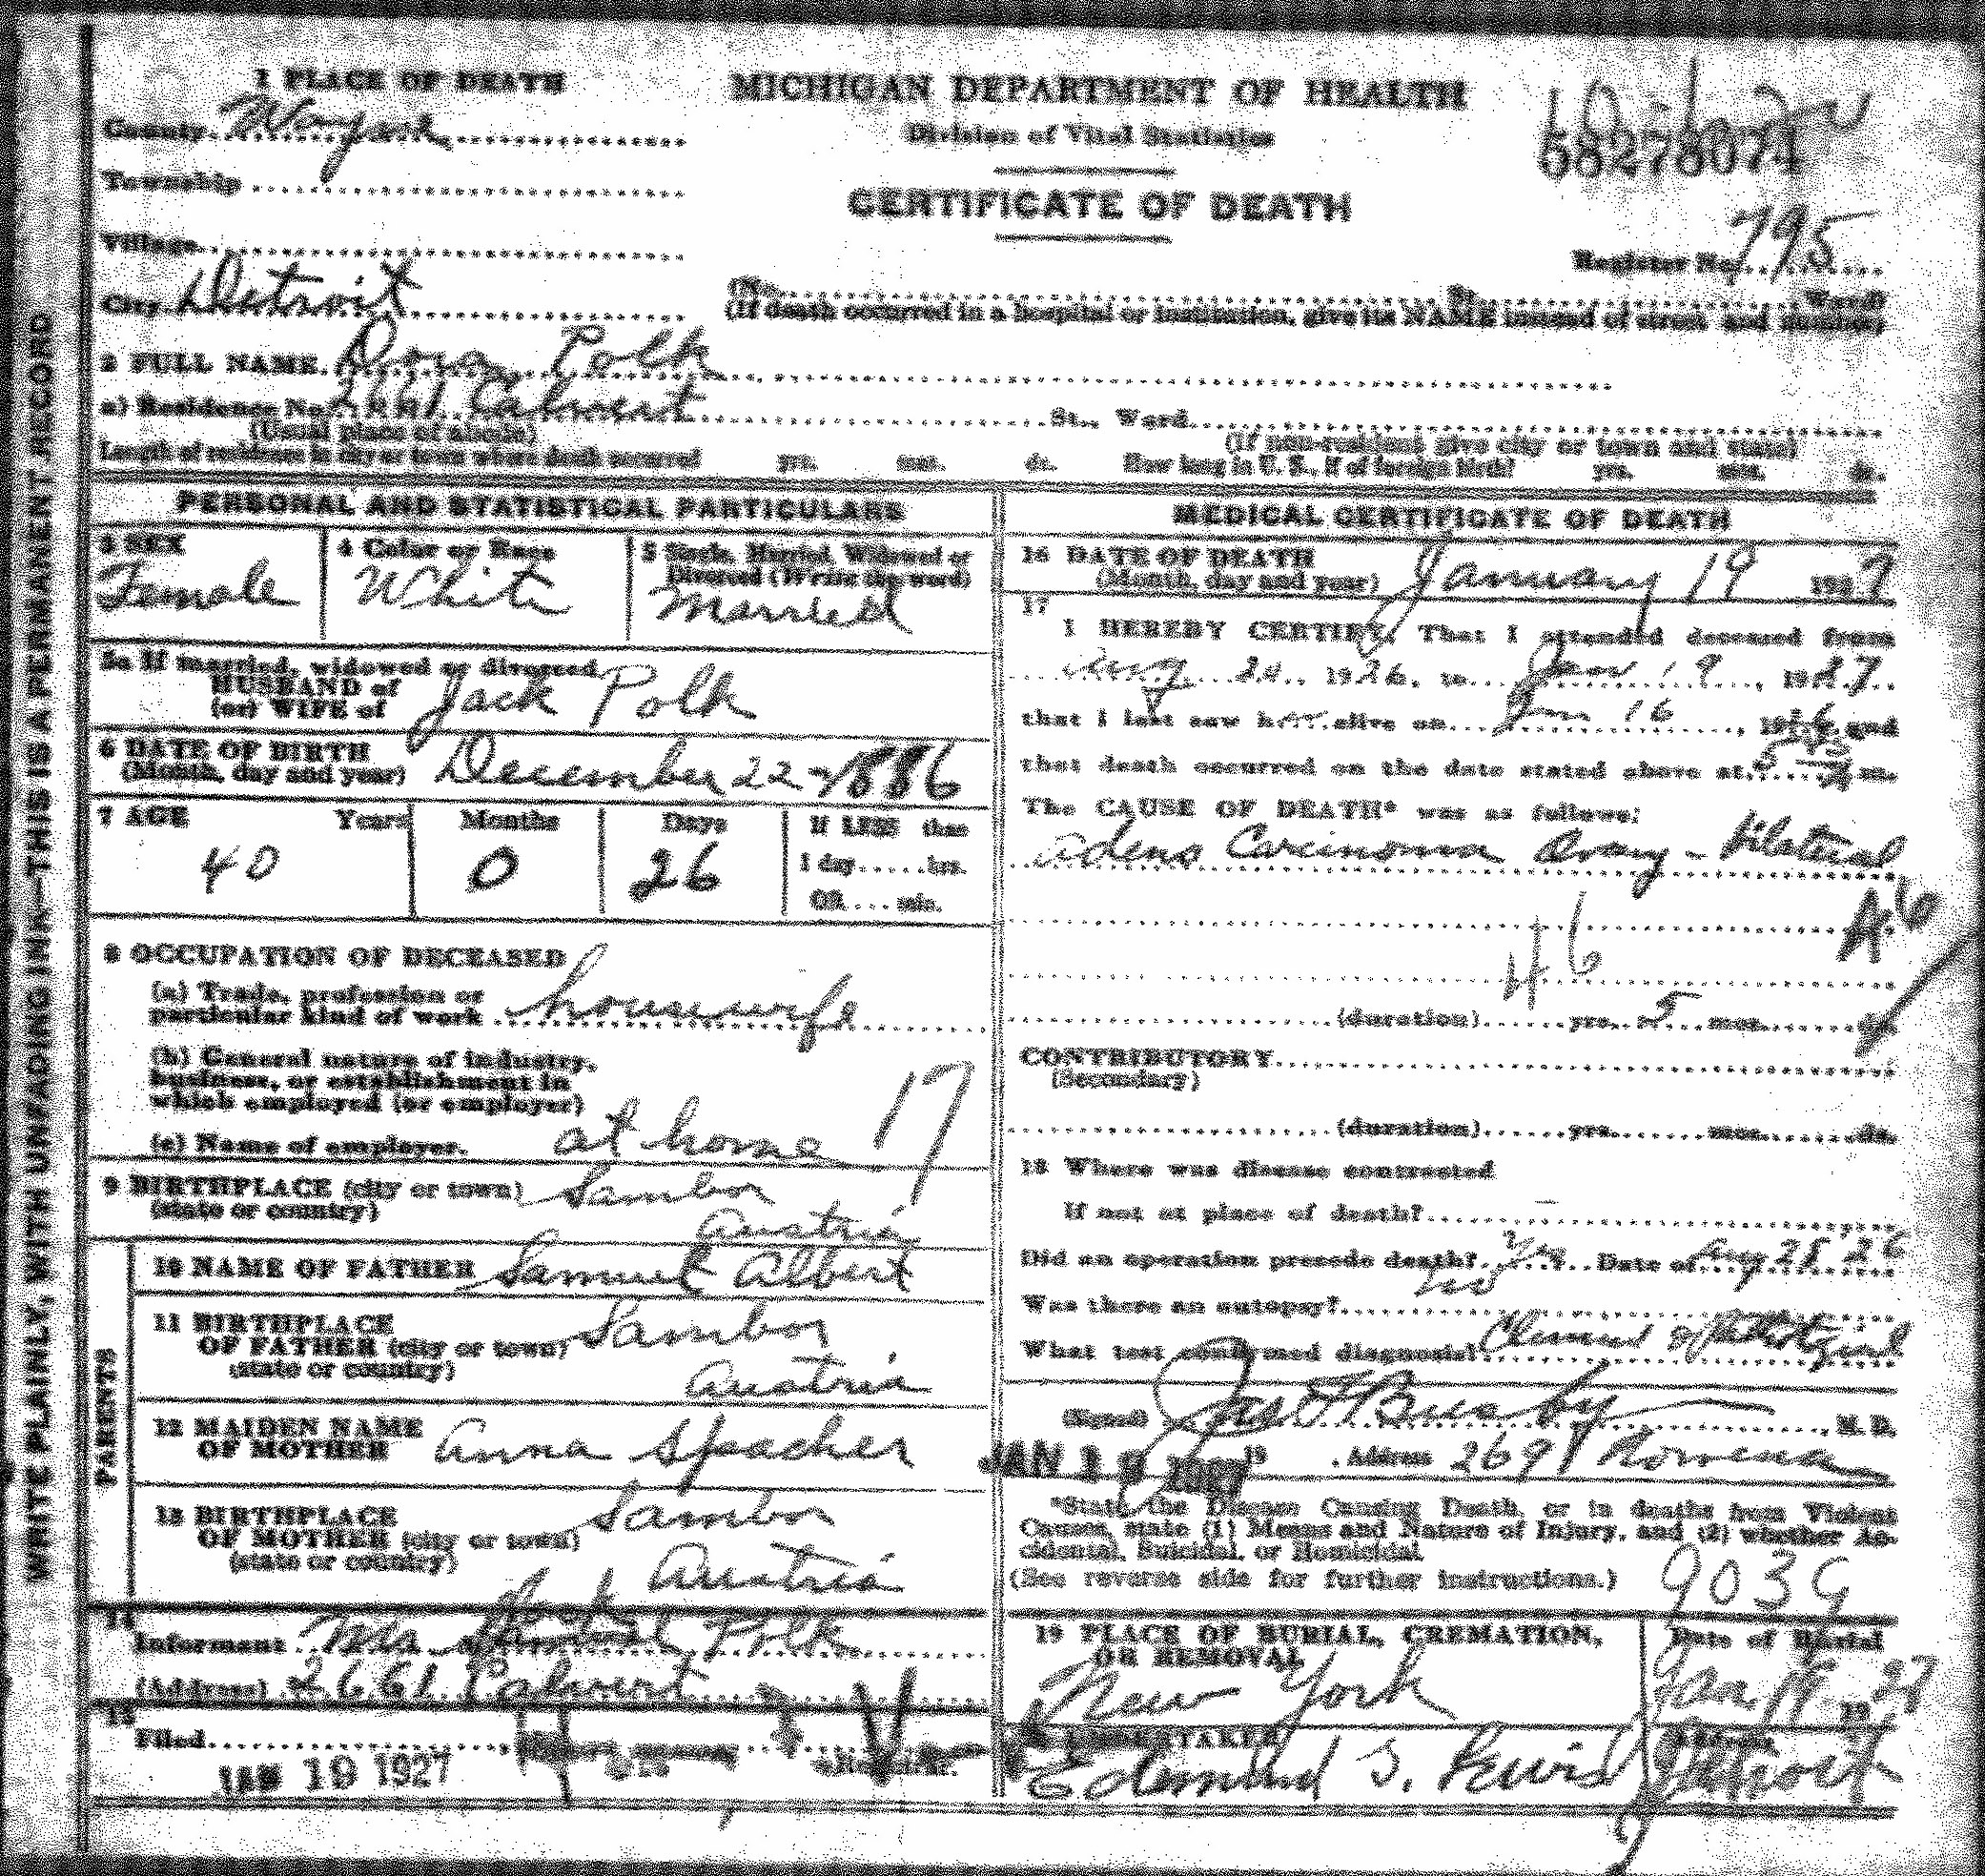 1 PLACE OF DEATH
County Wayne
Township
Village
City Detroit
MICHIGAN DEPARTMENT OF HEALTH
Division of Vital Statistics
CERTIFICATE OF DEATH
58278074
Register No. 795
(No. St. Ward)
(If death occurred in a hospital or institution, give its NAME instead of street and number)
2 FULL NAME Dora Polk
a) Residence No. 2661 Calvert St., Ward
(Usual place of abode) (If non-resident give city or town and state)
Length of residence in city or town where death occurred yrs. mos. ds. How long in U. S., if of foreign birth? yrs. mos. ds.
WRITE PLAINLY, WITH UNFADING INK—THIS IS A PERMANENT RECORD
PERSONAL AND STATISTICAL PARTICULARS
3 SEX
Female
4 Color or Race
White
5 Single, Married, Widowed or
Divorced (Write the word)
Married
5a If married, widowed or divorced
HUSBAND of
(or) WIFE of Jack Polk
6 DATE OF BIRTH
(Month, day and year) December 22 - 1886
7 AGE Years Months Days If LESS than
1 day hrs.
40 0 26
OR min.
8 OCCUPATION OF DECEASED
(a) Trade, profession or
particular kind of work housewife
(b) General nature of industry,
business, or establishment in
which employed (or employer)
17
(c) Name of employer. at home
9 BIRTHPLACE (city or town) Sambor
(state or country) Austria
PARENTS
10 NAME OF FATHER Samuel Albert
11 BIRTHPLACE
OF FATHER (city or town) Sambor
(state or country) Austria
12 MAIDEN NAME
OF MOTHER Anna Spacher
13 BIRTHPLACE
OF MOTHER (city or town) Sambor
(state or country) Austria
14
Informant Polk
(Address) 2661 Calvert
15
Filed
JAN 19 1927 Registrar.
MEDICAL CERTIFICATE OF DEATH
16 DATE OF DEATH
(Month, day and year) January 19 1927
17
I HEREBY CERTIFY, That I attended deceased from
Aug 24, 1926, to Jan 19, 1927
that I last saw her alive on Jan 16, 19 and
that death occurred on the date stated above at m.
The CAUSE OF DEATH* was as follows:
Adeno Carcinoma Ovary - bilateral
46
46
(duration) yrs. 5 mos. ds.
CONTRIBUTORY
(Secondary)
(duration) yrs. mos. ds.
18 Where was disease contracted
If not at place of death? -
Did an operation precede death? Yes Date of Aug 25, 26
Was there an autopsy? No
What test confirmed diagnosis?
(Signed) Jas F Busby, M. D.
JAN 19 1927 19 . Address 2691 Rowena
*State the Disease Causing Death, or in deaths from Violent
Causes, state (1) Means and Nature of Injury, and (2) whether Ac-
cidental, Suicidal, or Homicidal.
(See reverse side for further instructions.)
9039
19 PLACE OF BURIAL, CREMATION,
OR REMOVAL
New York
Date of Burial
Jan 19 1927
UNDERTAKER
Edmund S. Lewis
Address
Detroit